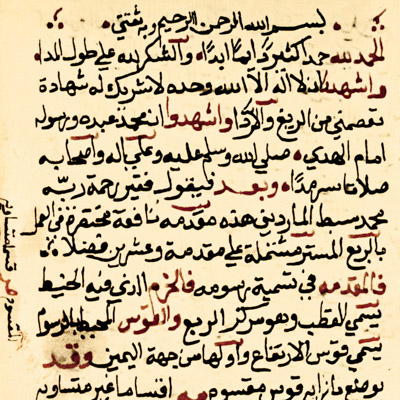 بسم الله الرحمن الرحيم وبه ثقتي
الحمد لله حمدا كثيرا دائما ابدا والشكر لله علي طول المدا
واشهد ان لا اله الا الله وحده لا شريك له شهادة
تعصمني من الزيغ والردا واشهد ان محمد عبده ورسوله
امام الهدي صلي الله وسلم عليه وعلي اله واصحابه
صلاتا سرمدا وبعد فيقول فقير رحمة ربه
محمد سبط المارديني هذه مقدمة نافعة مختصرة في العمل
بالربع المستر مشتملة علي مقدمة وعشرين فصلا
فالمقدمه في تسمية رسومه فالخرم الذي فيه الخيط
يسمي القطب وهو مركز الربع والقوس المحيط بالرسوم
يسمي قوس الارتفاع واوله من جهة اليمين وقد
يوضع بازايه قوس مقسوم اقساما غير متساويه